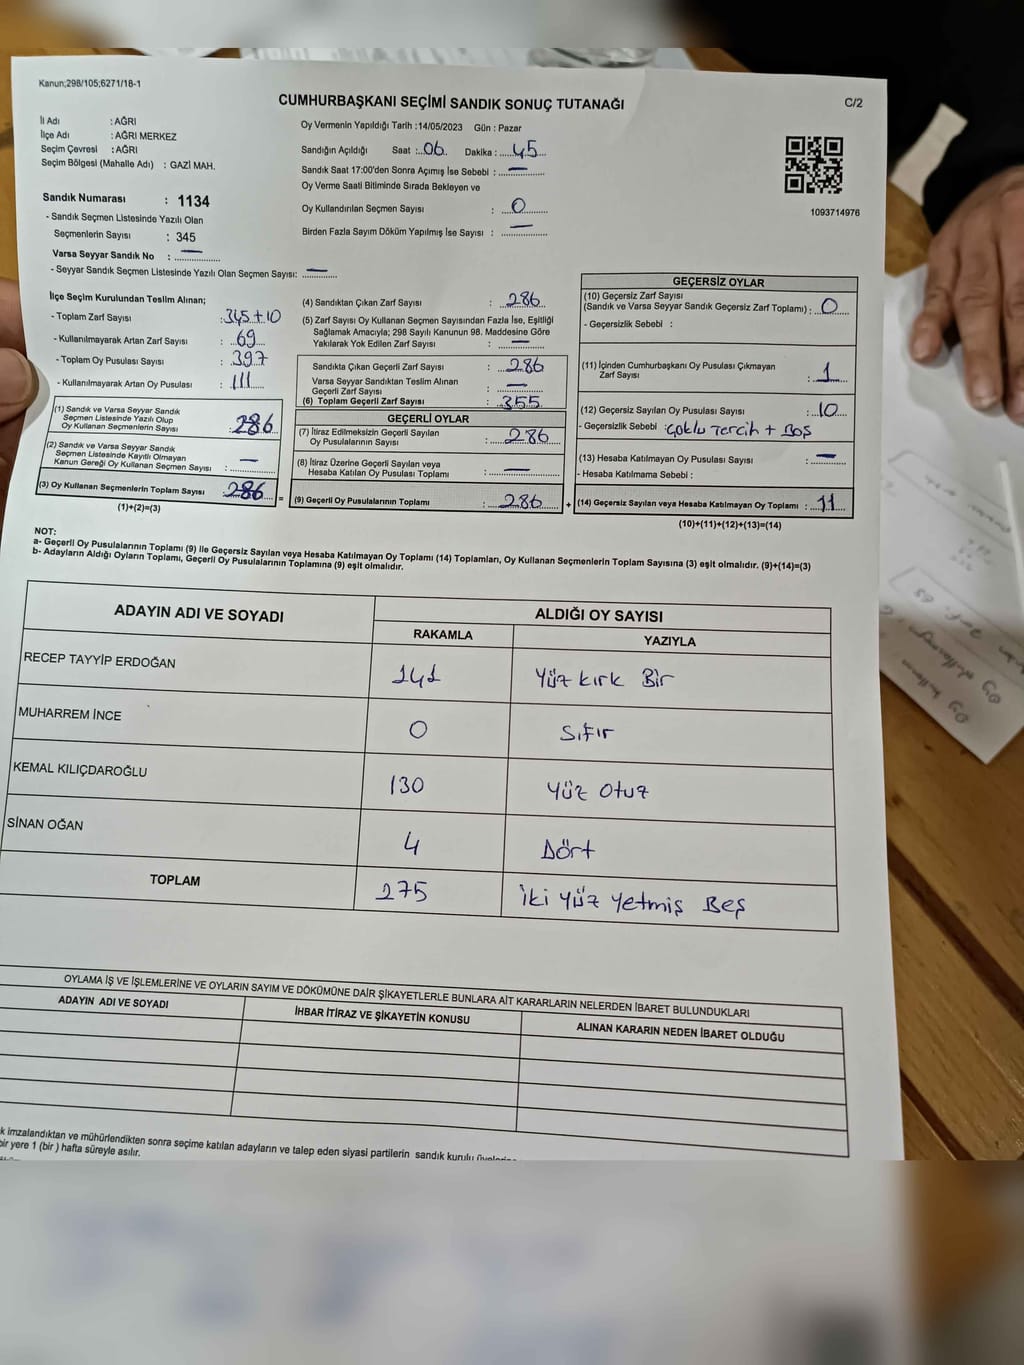 Kanun;298/105;6271/18-1
CUMHURBAŞKANI SEÇİMİ SANDIK SONUÇ TUTANAĞI
C/2
İl Adı : AĞRI
İlçe Adı : AĞRI MERKEZ
Seçim Çevresi : AĞRI
Seçim Bölgesi (Mahalle Adı) : GAZİ MAH.
Sandık Numarası : 1134
- Sandık Seçmen Listesinde Yazılı Olan
Seçmenlerin Sayısı : 345
Varsa Seyyar Sandık No : —
- Seyyar Sandık Seçmen Listesinde Yazılı Olan Seçmen Sayısı: —
Oy Vermenin Yapıldığı Tarih :14/05/2023 Gün : Pazar
Sandığın Açıldığı Saat : 06 Dakika : 45
Sandık Saat 17:00'den Sonra Açmış İse Sebebi : —
Oy Verme Saati Bitiminde Sırada Bekleyen ve
Oy Kullandırılan Seçmen Sayısı : 0
Birden Fazla Sayım Döküm Yapılmış İse Sayısı : —
1093714976
İlçe Seçim Kurulundan Teslim Alınan;
- Toplam Zarf Sayısı : 345+10
- Kullanılmayarak Artan Zarf Sayısı : 69
- Toplam Oy Pusulası Sayısı : 397
- Kullanılmayarak Artan Oy Pusulası : 111
(1) Sandık ve Varsa Seyyar Sandık
Seçmen Listesinde Yazılı Olup
Oy Kullanan Seçmenlerin Sayısı : 286
(2) Sandık ve Varsa Seyyar Sandık
Seçmen Listesinde Kayıtlı Olmayan
Kanun Gereği Oy Kullanan Seçmen Sayısı : —
(3) Oy Kullanan Seçmenlerin Toplam Sayısı : 286 =
(1)+(2)=(3)
(4) Sandıktan Çıkan Zarf Sayısı : 286
(5) Zarf Sayısı Oy Kullanan Seçmen Sayısından Fazla İse, Eşitliği
Sağlamak Amacıyla; 298 Sayılı Kanunun 98. Maddesine Göre
Yakılarak Yok Edilen Zarf Sayısı : —
Sandıkta Çıkan Geçerli Zarf Sayısı : 286
Varsa Seyyar Sandıktan Teslim Alınan
Geçerli Zarf Sayısı : —
(6) Toplam Geçerli Zarf Sayısı : 355
GEÇERLİ OYLAR
(7) İtiraz Edilmeksizin Geçerli Sayılan
Oy Pusulalarının Sayısı : 286
(8) İtiraz Üzerine Geçerli Sayılan veya
Hesaba Katılan Oy Pusulası Toplamı : —
(9) Geçerli Oy Pusulalarının Toplamı : 286 +
GEÇERSİZ OYLAR
(10) Geçersiz Zarf Sayısı
(Sandık ve Varsa Seyyar Sandık Geçersiz Zarf Toplamı) : 0
- Geçersizlik Sebebi :
(11) İçinden Cumhurbaşkanı Oy Pusulası Çıkmayan
Zarf Sayısı : 1
(12) Geçersiz Sayılan Oy Pusulası Sayısı : 10
- Geçersizlik Sebebi : Çoklu Tercih + Boş
(13) Hesaba Katılmayan Oy Pusulası Sayısı : —
- Hesaba Katılmama Sebebi :
(14) Geçersiz Sayılan veya Hesaba Katılmayan Oy Toplamı : 11
(10)+(11)+(12)+(13)=(14)
NOT:
a- Geçerli Oy Pusulalarının Toplamı (9) ile Geçersiz Sayılan veya Hesaba Katılmayan Oy Toplamı (14) Toplamları, Oy Kullanan Seçmenlerin Toplam Sayısına (3) eşit olmalıdır. (9)+(14)=(3)
b- Adayların Aldığı Oyların Toplamı, Geçerli Oy Pusulalarının Toplamına (9) eşit olmalıdır.
ADAYIN ADI VE SOYADI ALDIĞI OY SAYISI
RAKAMLA YAZIYLA
RECEP TAYYİP ERDOĞAN 141 Yüz kırk Bir
MUHARREM İNCE 0 Sıfır
KEMAL KILIÇDAROĞLU 130 Yüz Otuz
SİNAN OĞAN 4 Dört
TOPLAM 275 İki Yüz Yetmiş Beş
OYLAMA İŞ VE İŞLEMLERİNE VE OYLARIN SAYIM VE DÖKÜMÜNE DAİR ŞİKAYETLERLE BUNLARA AİT KARARLARIN NELERDEN İBARET BULUNDUKLARI
ADAYIN ADI VE SOYADI İHBAR İTİRAZ VE ŞİKAYETİN KONUSU ALINAN KARARIN NEDEN İBARET OLDUĞU
k imzalandıktan ve mühürlendikten sonra seçime katılan adayların ve talep eden siyasi partilerin sandık kurulu
bir yere 1 (bir ) hafta süreyle asılır.